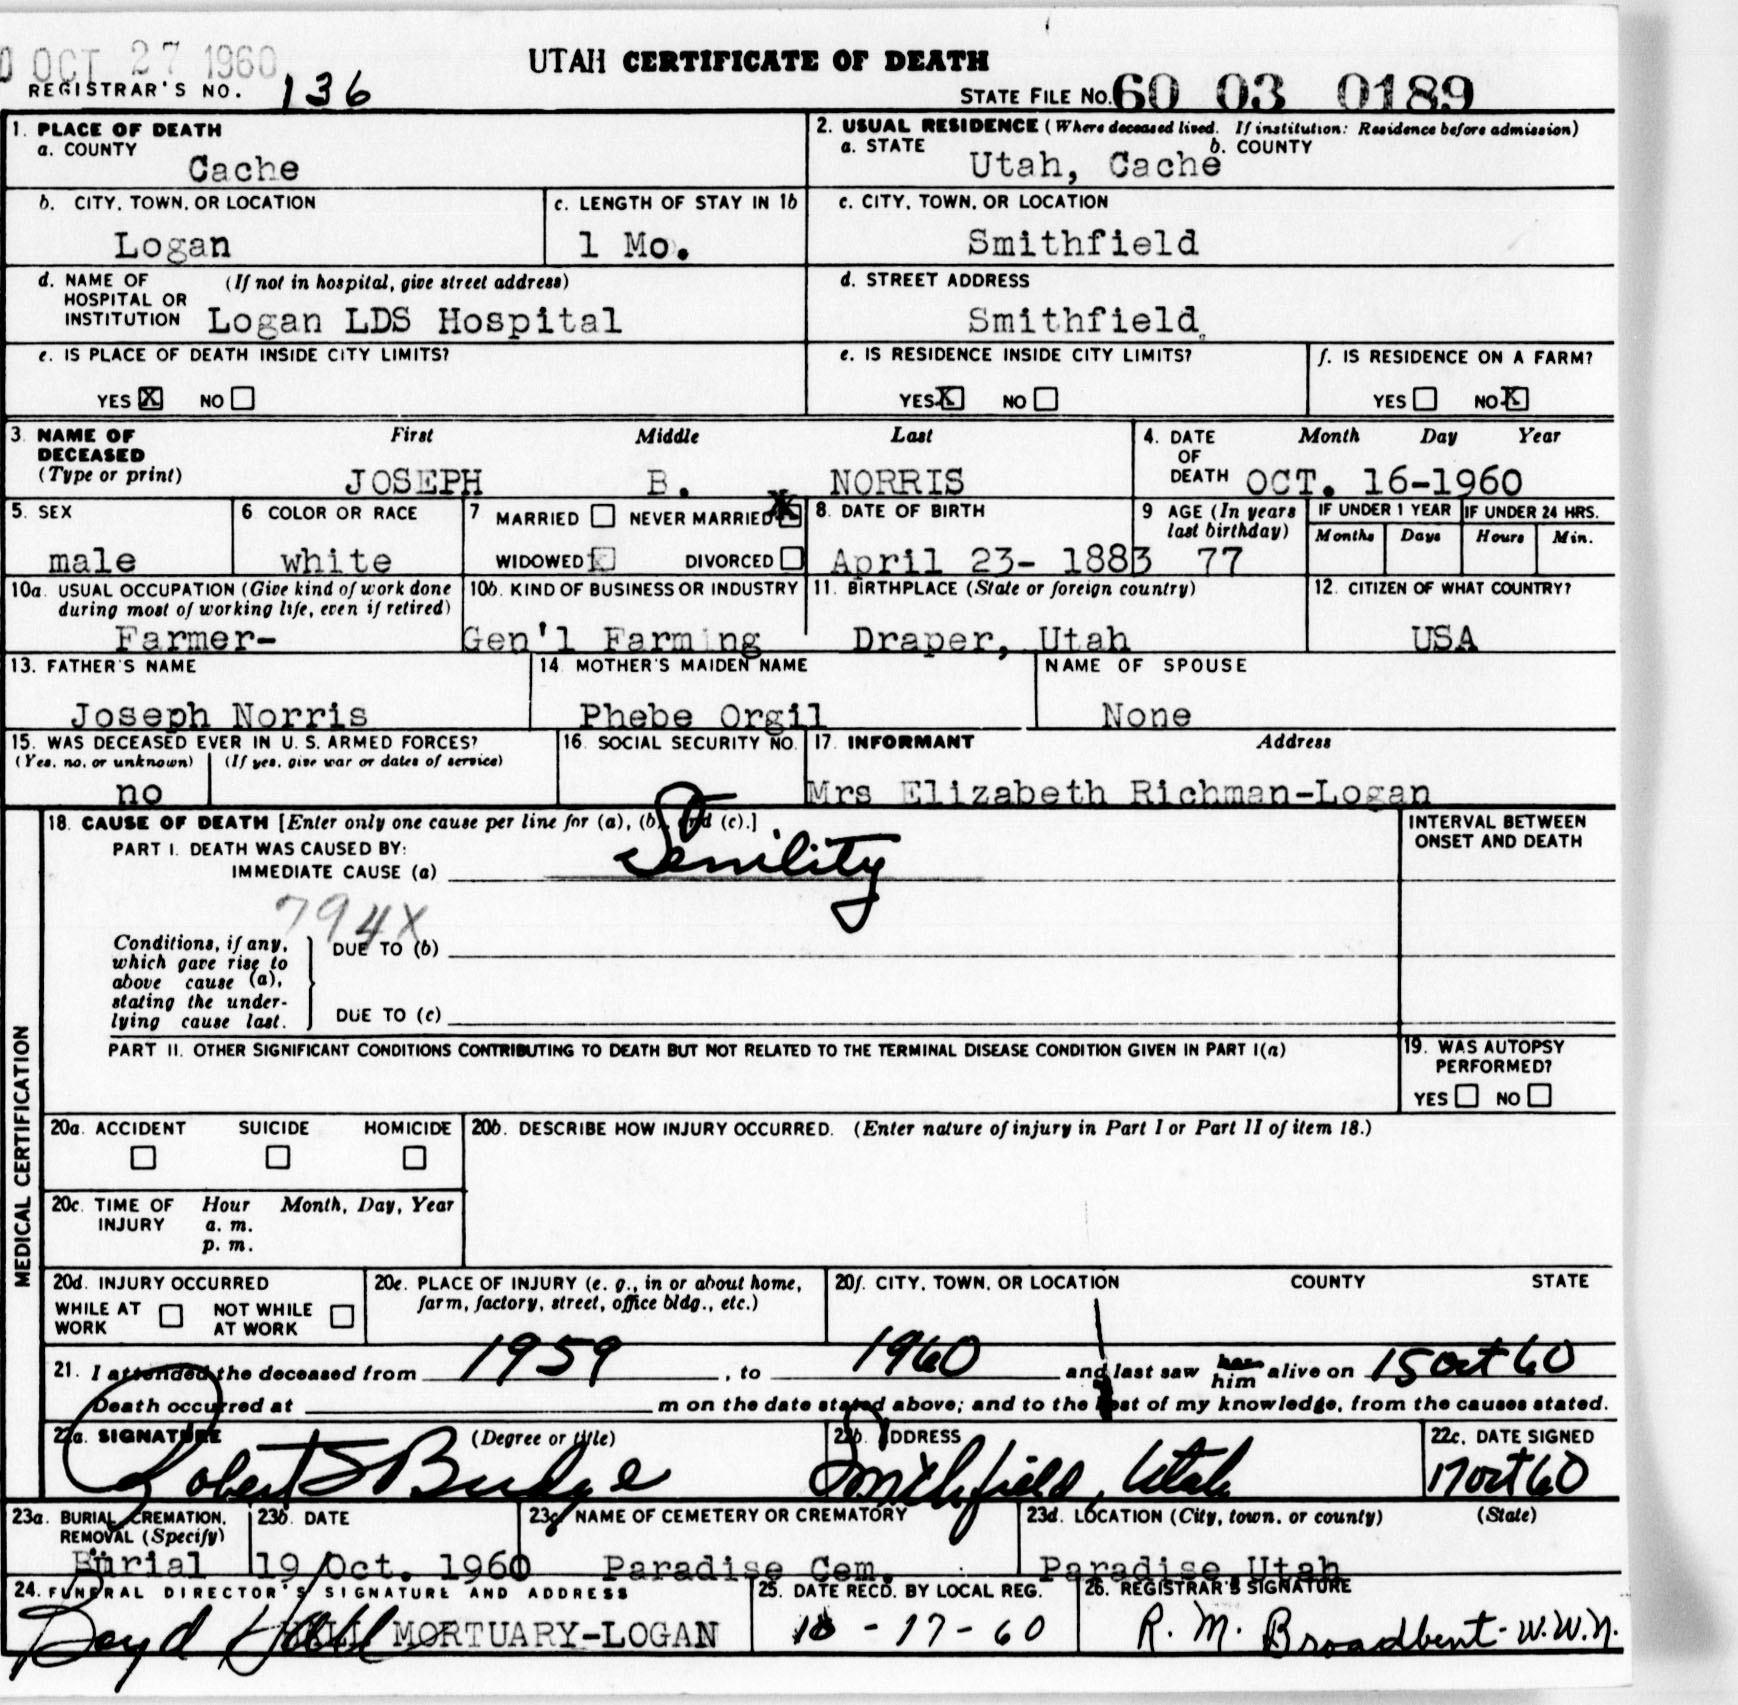 OCT 27 1960
UTAH CERTIFICATE OF DEATH
REGISTRAR'S NO. 136
STATE FILE NO. 60 03 0189
1. PLACE OF DEATH
a. COUNTY
Cache
2. USUAL RESIDENCE (Where deceased lived. If institution: Residence before admission)
a. STATE b. COUNTY
Utah, Cache
b. CITY, TOWN, OR LOCATION
Logan
c. LENGTH OF STAY IN 1b
1 Mo.
c. CITY, TOWN, OR LOCATION
Smithfield
d. NAME OF HOSPITAL OR INSTITUTION (If not in hospital, give street address)
Logan LDS Hospital
d. STREET ADDRESS
Smithfield
e. IS PLACE OF DEATH INSIDE CITY LIMITS?
YES X NO
e. IS RESIDENCE INSIDE CITY LIMITS?
YES X NO
f. IS RESIDENCE ON A FARM?
YES NO X
3. NAME OF DECEASED (Type or print)
First Middle Last
JOSEPH B. NORRIS
4. DATE OF DEATH Month Day Year
OCT. 16-1960
5. SEX
male
6. COLOR OR RACE
white
7 MARRIED NEVER MARRIED X
WIDOWED DIVORCED
8. DATE OF BIRTH
April 23- 1883
9 AGE (In years last birthday)
77
IF UNDER 1 YEAR IF UNDER 24 HRS.
Months Days Hours Min.
10a. USUAL OCCUPATION (Give kind of work done during most of working life, even if retired)
Farmer-
10b. KIND OF BUSINESS OR INDUSTRY
Gen'l Farming
11. BIRTHPLACE (State or foreign country)
Draper, Utah
12. CITIZEN OF WHAT COUNTRY?
USA
13. FATHER'S NAME
Joseph Norris
14. MOTHER'S MAIDEN NAME
Phebe Orgil
NAME OF SPOUSE
None
15. WAS DECEASED EVER IN U. S. ARMED FORCES?
(Yes, no, or unknown) (If yes, give war or dates of service)
no
16. SOCIAL SECURITY NO.
17. INFORMANT Address
Mrs Elizabeth Richman-Logan
MEDICAL CERTIFICATION
18. CAUSE OF DEATH [Enter only one cause per line for (a), (b), and (c).]
PART I. DEATH WAS CAUSED BY:
IMMEDIATE CAUSE (a) Senility
INTERVAL BETWEEN ONSET AND DEATH
794X
Conditions, if any, which gave rise to above cause (a), stating the underlying cause last.
DUE TO (b)
DUE TO (c)
PART II. OTHER SIGNIFICANT CONDITIONS CONTRIBUTING TO DEATH BUT NOT RELATED TO THE TERMINAL DISEASE CONDITION GIVEN IN PART I(a)
19. WAS AUTOPSY PERFORMED?
YES NO
20a. ACCIDENT SUICIDE HOMICIDE
20b. DESCRIBE HOW INJURY OCCURRED. (Enter nature of injury in Part I or Part II of item 18.)
20c. TIME OF INJURY Hour Month, Day, Year
a. m.
p. m.
20d. INJURY OCCURRED
WHILE AT WORK NOT WHILE AT WORK
20e. PLACE OF INJURY (e. g., in or about home, farm, factory, street, office bldg., etc.)
20f. CITY, TOWN, OR LOCATION COUNTY STATE
21. I attended the deceased from 1959, to 1960 and last saw her him alive on 15 Oct 60
Death occurred at m on the date stated above; and to the best of my knowledge, from the causes stated.
22a. SIGNATURE (Degree or title)
Robert S Budge
22b. ADDRESS
Smithfield, Utah
22c. DATE SIGNED
17 Oct 60
23a. BURIAL, CREMATION, REMOVAL (Specify)
Burial
23b. DATE
19 Oct. 1960
23c. NAME OF CEMETERY OR CREMATORY
Paradise Cem.
23d. LOCATION (City, town, or county) (State)
Paradise Utah
24. FUNERAL DIRECTOR'S SIGNATURE AND ADDRESS
Boyd Hall HALL MORTUARY-LOGAN
25. DATE RECD. BY LOCAL REG.
10-17-60
26. REGISTRAR'S SIGNATURE
R. M. Broadbent-W.W.N.